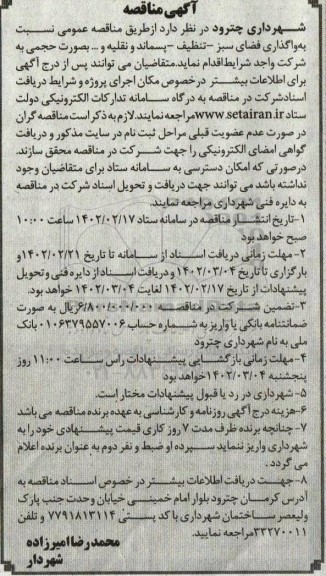 آگهی مناقصه
شهرداری چترود در نظر دارد ازطریق مناقصه عمومی نسبت
به‌واگذاری فضای سبز -تنظیف -پسماند و نقلیه و ... بصورت حجمی به
شرکت واجد شرایط اقدام نماید.متقاضیان می توانند پس از درج آگهی
برای اطلاعات بیشتر درخصوص مکان اجرای پروژه و شرایط دریافت
اسنادشرکت در مناقصه به درگاه سامانه تدارکات الکترونیکی دولت
ستاد www.setairan.ir مراجعه نمایند.لازم به ذکر است مناقصه گران
در صورت عدم عضویت قبلی مراحل ثبت نام در سایت مذکور و دریافت
گواهی امضای الکترونیکی را جهت شرکت در مناقصه محقق سازند.
درصورتی که امکان دسترسی به سامانه ستاد برای متقاضیان وجود
نداشته باشد می توانند جهت دریافت و تحویل اسناد شرکت در مناقصه
به دایره فنی شهرداری مراجعه نمایند.
۱-تاریخ انتشار مناقصه در سامانه ستاد ۱۴۰۲/۰۲/۱۷ ساعت ۱۰:۰۰
صبح خواهد بود
۲-مهلت زمانی دریافت اسناد از سامانه تا تاریخ ۱۴۰۲/۰۲/۲۱و
بارگزاری تا تاریخ ۱۴۰۲/۰۳/۰۴ و دریافت اسناد از دایره فنی و تحویل
پیشنهادات از تاریخ ۱۴۰۲/۰۲/۱۷ لغایت ۱۴۰۲/۰۳/۰۴ خواهد بود.
۳-تضمین شرکت در مناقصه ۶/۸۰۰/۰۰۰/۰۰۰ریال به صورت
ضمانتنامه بانکی یا واریز به شماره حساب ۰۱۰۶۳۷۹۵۵۷۰۰۶ بانک
ملی به نام شهرداری چترود
۴-مهلت زمانی بازگشایی پیشنهادات راس ساعت ۱۱:۰۰ روز
پنجشنبه ۱۴۰۲/۰۳/۰۴خواهد بود
۵-شهرداری در رد یا قبول پیشنهادات مختار است.
۶-هزینه درج آگهی روزنامه و کارشناسی به عهده برنده مناقصه می باشد
۷-چنانچه برنده ظرف مدت ۷ روز کاری قیمت پیشنهادی خود را به
شهرداری واریز ننماید سپرده او ضبط و نفر دوم به عنوان برنده اعلام
می گردد.
۸-جهت دریافت اطلاعات بیشتر در خصوص اسناد مناقصه به
آدرس کرمان چترود بلوار امام خمینی خیابان وحدت جنب پارک
ولیعصر ساختمان شهرداری با کد پستی ۷۷۹۱۸۱۳۱۱۴ و تلفن
۳۳۲۷۰۰۱۱مراجعه نمایید.
محمدرضا امیرزاده
شهردار